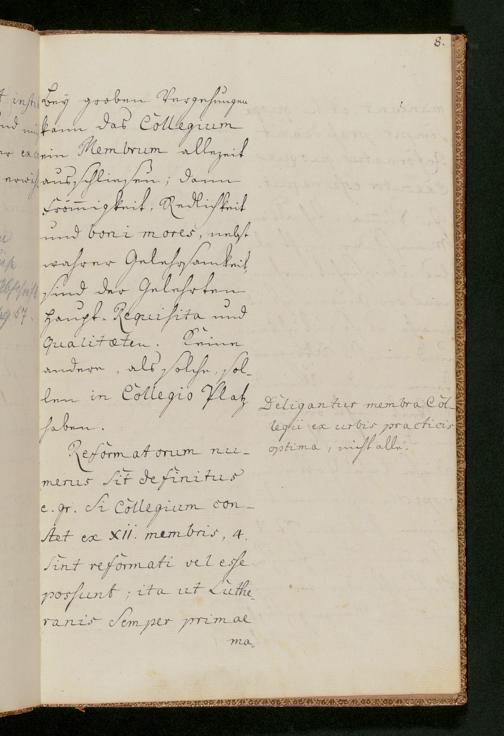 8.
Bey groben Vergehungen
kann das Collegium
ein Membrum allezeit
ausschliesen; dann
Frömmigkeit, Redlichkeit
und boni mores, nebst
wahrer Gelehrsamkeit
sind der Gelehrten
Haupt-Requisita und
Qualitæten. Keine
andere, als solche, sol-
len in Collegio Platz
haben.
Reformatorum nu-
merus sit definitus
e. gr. Si Collegium con-
stet ex XII. membris, 4.
sint reformati vel esse
possunt; ita ut Luthe-
ranis semper primae
ma-
Deligantur membra Col-
legii ex urbis practicis
optima, nicht alle.